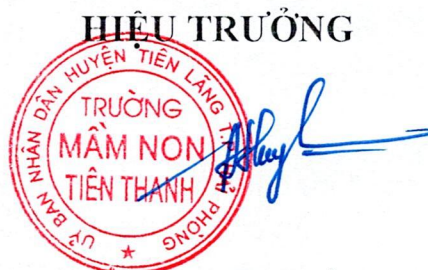 HIỆU TRƯỞNG
UỶ BAN NHÂN DÂN HUYỆN TIÊN LÃNG
PHÒNG
TRƯỜNG
MẦM NON
TIÊN THANH